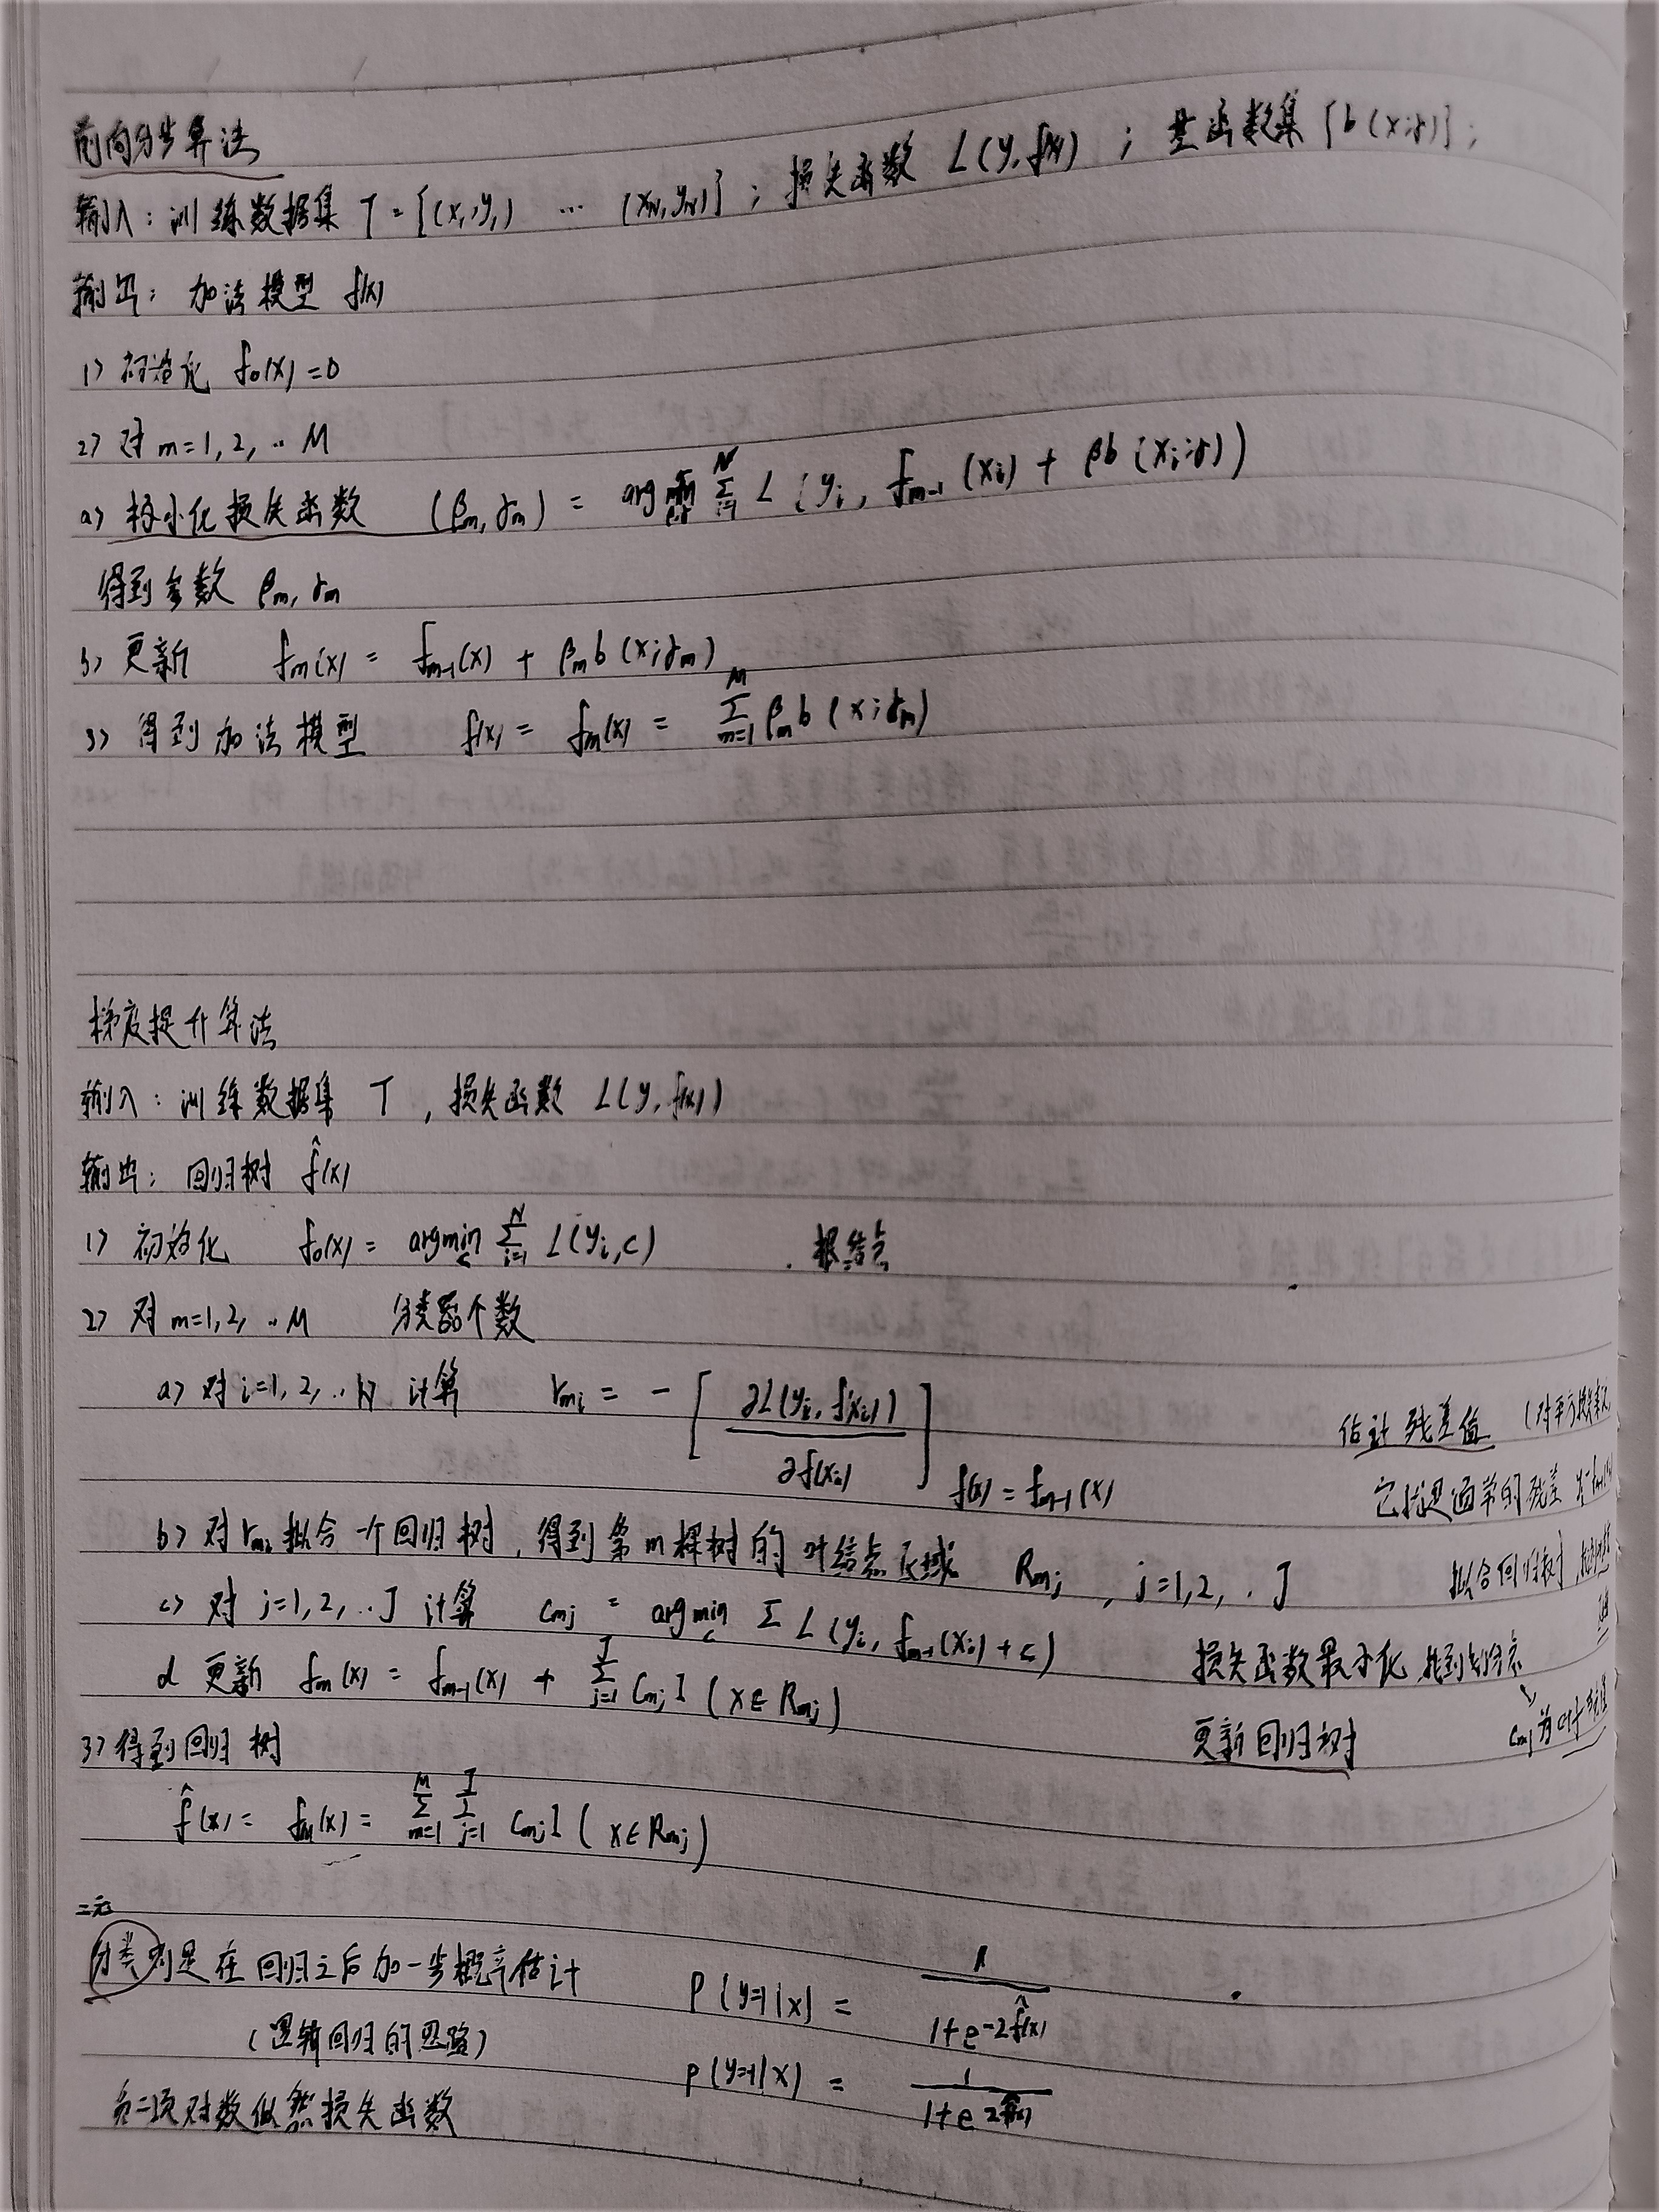 前向分步算法
输入：训练数据集 T = {(x₁,y₁) ... (x_N,y_N)} ；损失函数 L(y,f(x)) ；基函数集 {b(x;γ)} ；
输出：加法模型 f(x)
1) 初始化 f₀(x) = 0
2) 对 m=1,2, .. M
a) 极小化损失函数 (βm, γm) = argmin_{β,γ} Σ_{i=1}^{N} L(yi, f_{m-1}(xi) + βb(xi;γ))
得到参数 βm, γm
b) 更新 fm(x) = f_{m-1}(x) + βm b(x;γm)
3) 得到加法模型 f(x) = fm(x) = Σ_{m=1}^{M} βm b(x;γm)
梯度提升算法
输入：训练数据集 T ，损失函数 L(y,f(x))
输出：回归树 f̂(x)
1) 初始化 f₀(x) = argmin_c Σ_{i=1}^{N} L(yi,c) . 根结点
2) 对 m=1,2, .. M 分类器个数
a) 对 i=1,2,..N 计算 r_{mi} = -[∂L(yi,f(xi)) / ∂f(xi)]_{f(x)=f_{m-1}(x)} 估计残差值 (对平方损失
它就是通常的残差
b) 对 r_{mi} 拟合一个回归树，得到第m棵树的叶结点区域 R_{mj} , j=1,2, . J 拟合回归树
c) 对 j=1,2, .. J 计算 C_{mj} = argmin_c Σ L(yi, f_{m-1}(xi)+c) 损失函数最小化 找到划分点
d 更新 fm(x) = f_{m-1}(x) + Σ_{j=1}^{J} C_{mj} I(x∈R_{mj}) 更新回归树 C_{mj}为
3) 得到回归树
f̂(x) = f_M(x) = Σ_{m=1}^{M} Σ_{j=1}^{J} C_{mj} I(x∈R_{mj})
二元
分类则是在回归之后加一步概率估计 P(y=1|x) = 1 / (1+e^{-2f̂(x)})
(逻辑回归的思路)
负二项对数似然损失函数 P(y=-1|x) = 1 / (1+e^{2f̂(x)})